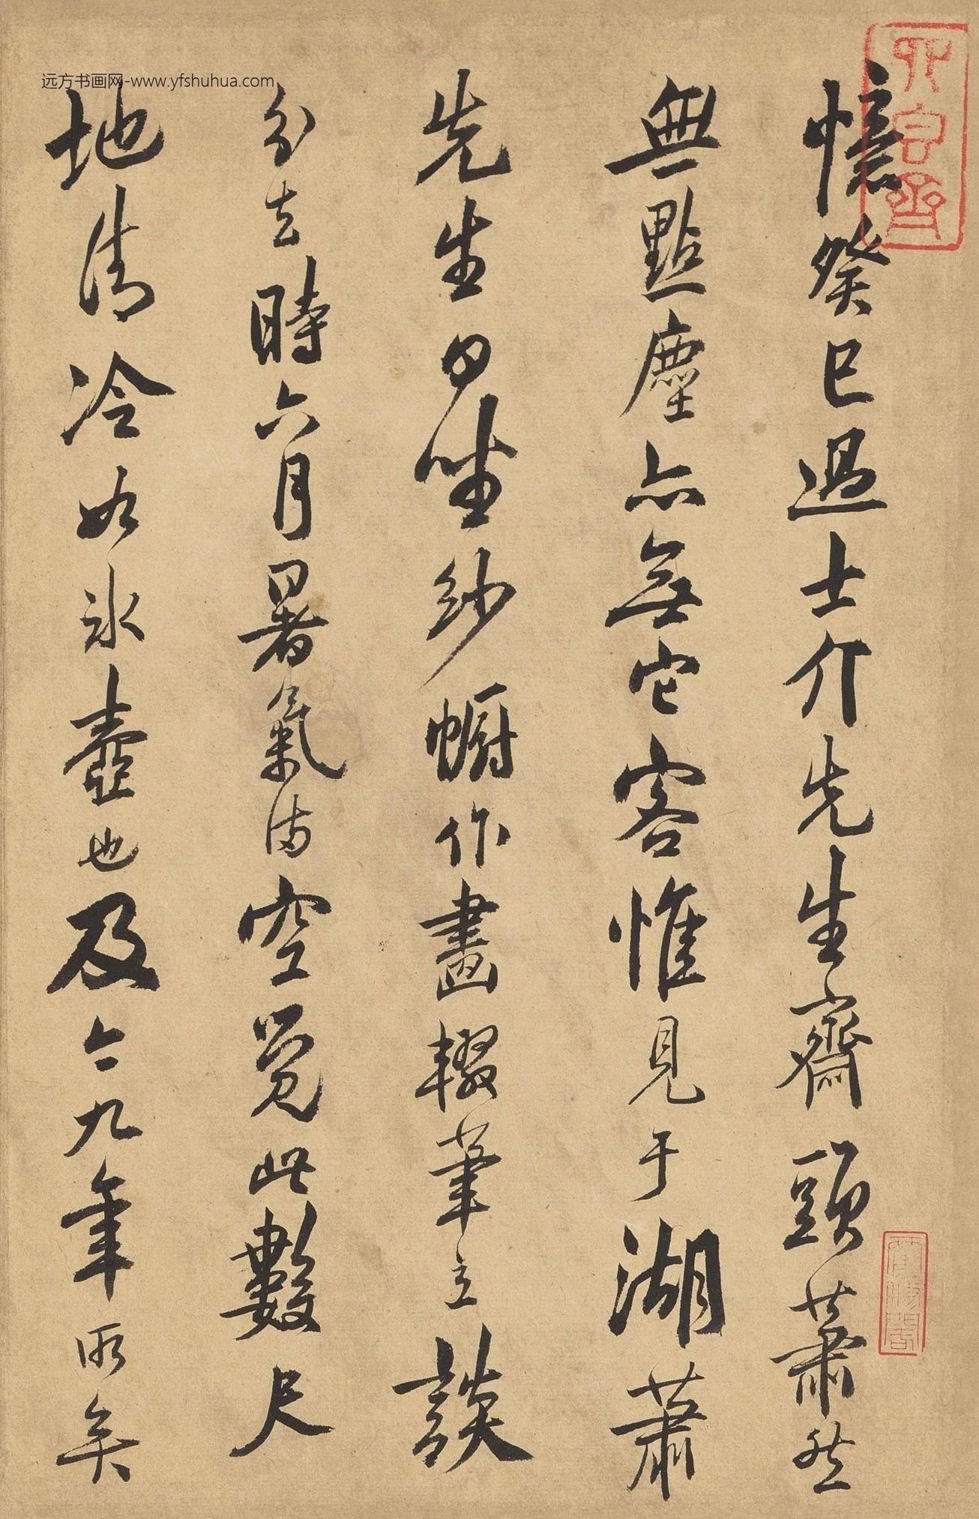 远方书画网-www.yfshuhua.com
憶癸巳過士介先生齋頭蕭然
無點塵亦無它客惟見于湖蕭
先生日坐紗幮作畫輟筆立談
分去時六月暑氣滿空覺此數尺
地清冷如冰壺也及今九年所矣